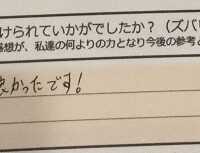 けられていかがでしたか？（ズバリ
感想が、私達の何よりの力となり今後の参考と
良かったです！